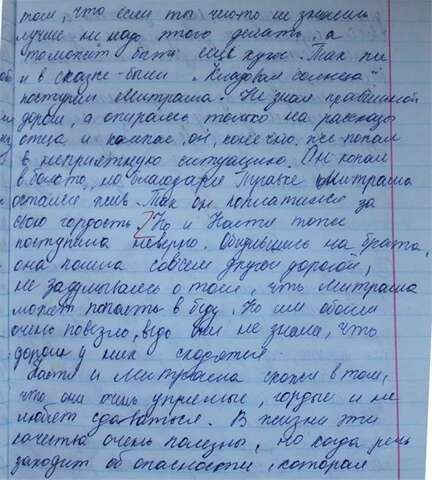 том, что если ты чего то не знаешь
лучше не надо этого делать, а
то может быть ещё хуже. Так же
и в сказке-были "Кладовая солнца"
поступил Митраша. Не зная правильной
дороги, а опираясь только на рассказы
отца и компас, он, конечно, же попал
в неприятную ситуацию. Он попал
в болото, но благодаря Травке Митраша
остался жив. Так он поплатился за
свою гордость. Но и Настя тоже
поступила неверно. Обидевшись на брата,
она пошла совсем другой дорогой,
не задумываясь о том, что Митраша
может попасть в беду. Но им обоим
очень повезло, ведь они не знали, что
дороги у них сходятся.
Настя и Митраша схожи в том,
что они очень упрямые, гордые и не
любят сдаваться. В жизни эти
качества очень полезны, но когда речь
заходит об опасности, которая